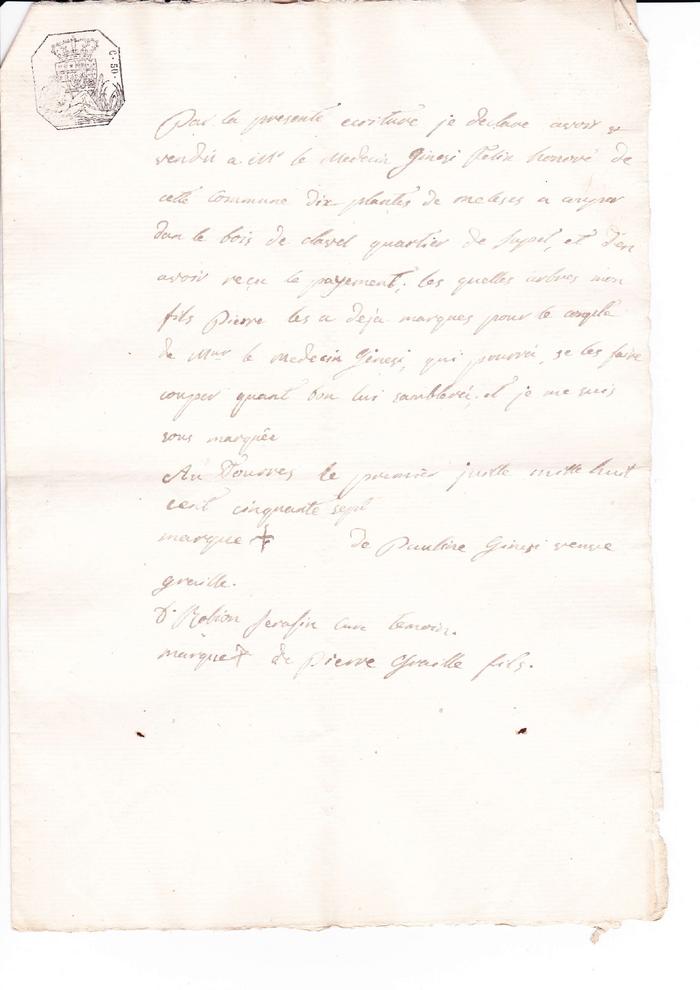 C. 50.
Par la presente ecriture je declare avoir
vendu a Mr le Medecin Ginesi Felix honoré de
cette commune dix plantes de meleses a couper
dan le bois de clavel quartier de Supel, et d'en
avoir reçu le payement; les quelles arbres mon
fils Pierre les a deja marques pour le compte
de Mur le medecin Ginesi, qui pourra, se les faire
couper quant bon lui samblera, et je me suis
sous marquée
Au Tourres le premier juste mille huit
cent cinquante sept
marque de Pauline Ginesi veuve
graille.
D. Robion Serafin cure temoin.
marque de Pierre Graille fils.